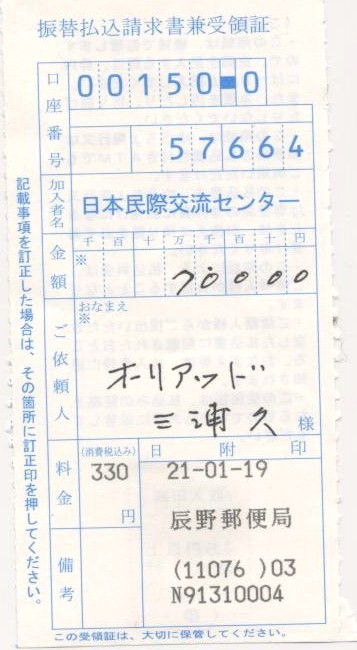 振替払込請求書兼受領証
口座番号 00150-0
57664
加入者名 日本民際交流センター
金額 千 百 十 万 千 百 十 円
※ 70000
ご依頼人 おなまえ
※
オーリアッド
三浦久 様
料金 (消費税込み) 330 円
日附印
21-01-19
辰野郵便局
備考
(11076 )03
N91310004
記載事項を訂正した場合は、その箇所に訂正印を押してください。
この受領証は、大切に保管してください。